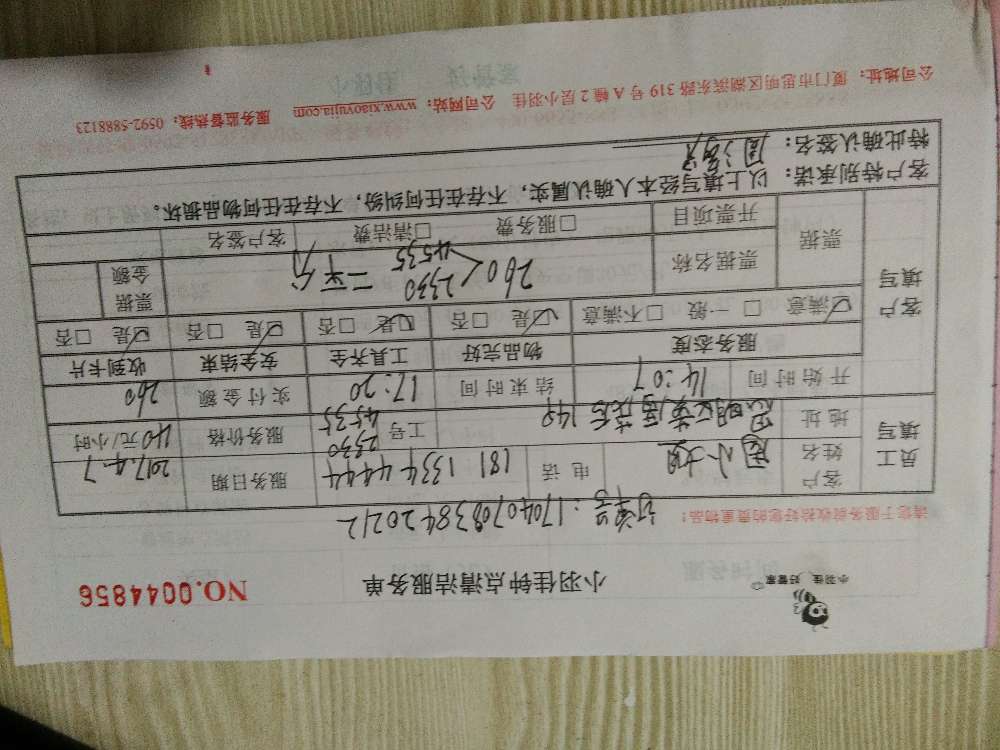 小羽佳 好管家
小羽佳钟点清洁服务单
NO.0044856
请您于服务前收拾好您的贵重物品!
订单号:17040708384 20212
员工填写
客户姓名 周小姐 电话 181 1334 4444 服务日期 2017.4.7
地址 思明区 149 工号 2330 4535 服务价格 40元/小时
开始时间 14:07 结束时间 17:20 实付金额 260
客户填写
服务态度 物品完好 工具齐全 安全结束 收到卡片
☑满意 □一般 □不满意 ☑是 □否 ☑是 □否 ☑是 □否 ☑是 □否
票据 票据名称 260 2330 4535 二平分 票据金额
开票项目 □服务费 □清洁费 客户签名
客户特别承诺: 以上填写经本人确认属实,不存在任何纠纷,不存在任何物品损坏。
特此确认签名:
公司地址:厦门市思明区湖滨东路319号A幢2层小羽佳 公司网站:www.xiaoyujia.com 服务监督热线:0592-5888123